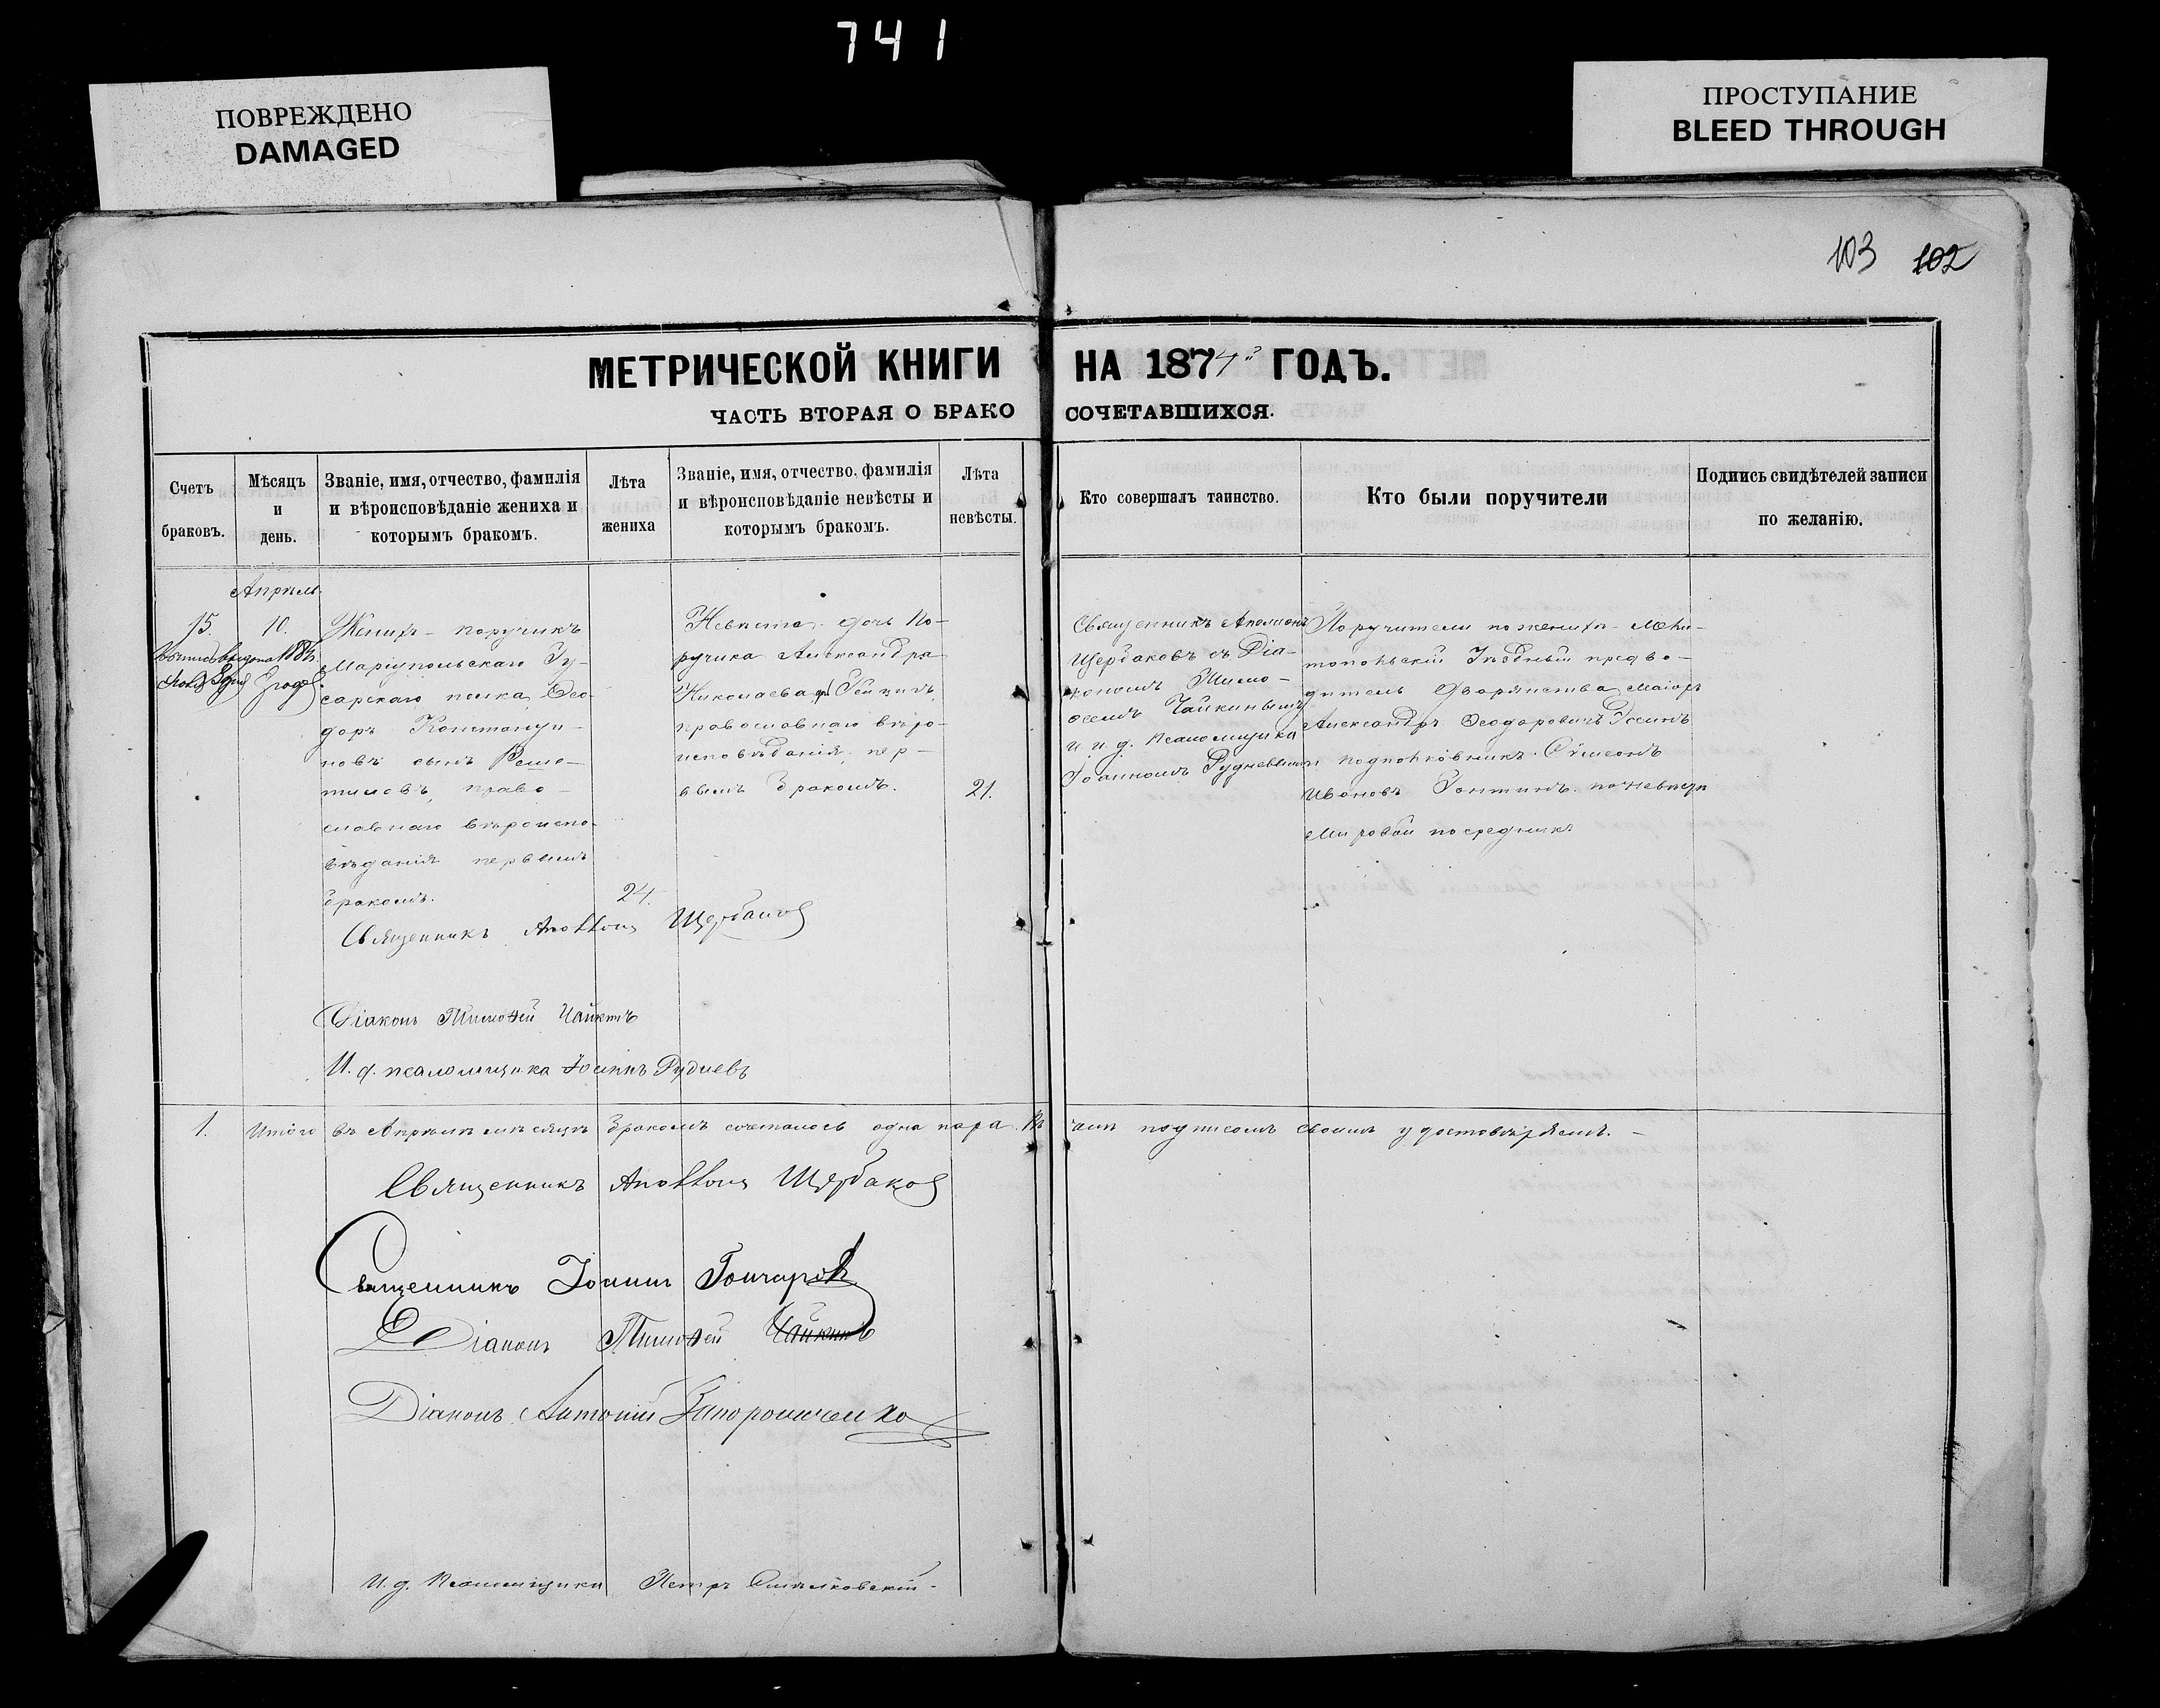 741
ПОВРЕЖДЕНО
DAMAGED
ПРОСТУПАНИЕ
BLEED THROUGH
103 102
МЕТРИЧЕСКОЙ КНИГИ НА 1874 ГОДЪ.
ЧАСТЬ ВТОРАЯ О БРАКО СОЧЕТАВШИХСЯ.
Счетъ браковъ.
Мѣсяцъ и день.
Званіе, имя, отчество, фамилія
и вѣроисповѣданіе жениха и
которымъ бракомъ.
Лѣта жениха
Званіе, имя, отчество, фамилія
и вѣроисповѣданіе невѣсты и
которымъ бракомъ.
Лѣта невѣсты.
Кто совершалъ таинство.
Кто были поручители
Подпись свидѣтелей записи
по желанію.
Апрѣль
15. 10.
Женихъ – поручикъ
Маріупольскаго Гу-
сарскаго полка, Ѳео-
доръ Константи-
новъ сынъ
православнаго вѣроиспо-
вѣданія первымъ
бракомъ.
24.
Невѣста – дочь По-
ручика Александра
Николаева
православнаго вѣро-
исповѣданія, пер-
вымъ бракомъ.
21.
Священникъ Аполлонъ
Щербаковъ съ Діа-
кономъ Тимо-
ѳеемъ Чайкинымъ
и и. д. псаломщика
Іоанномъ Рудневымъ
Поручители по женихѣ – Мели-
топольскій Уѣздный предво-
дитель Дворянства Маіоръ
Александръ Ѳеодоровичъ
и подполковникъ Сѵмеонъ
Ивановъ по невѣстѣ
Мировой посредникъ
Священникъ Аполлонъ Щербаковъ
Діаконъ Тимоѳей Чайкинъ
И. д. псаломщика Іоаннъ Рудневъ
1. Итого въ Апрѣлѣ мѣсяцѣ бракомъ сочеталось одна пара. въ чемъ подписомъ своимъ удостовѣряемъ. –
Священникъ Аполлонъ Щербаковъ
Священникъ Іоаннъ Гончаровъ
Діаконъ Тимоѳей Чайкинъ
Діаконъ Антоній Запорожченко
И. д. Псаломщика Петръ